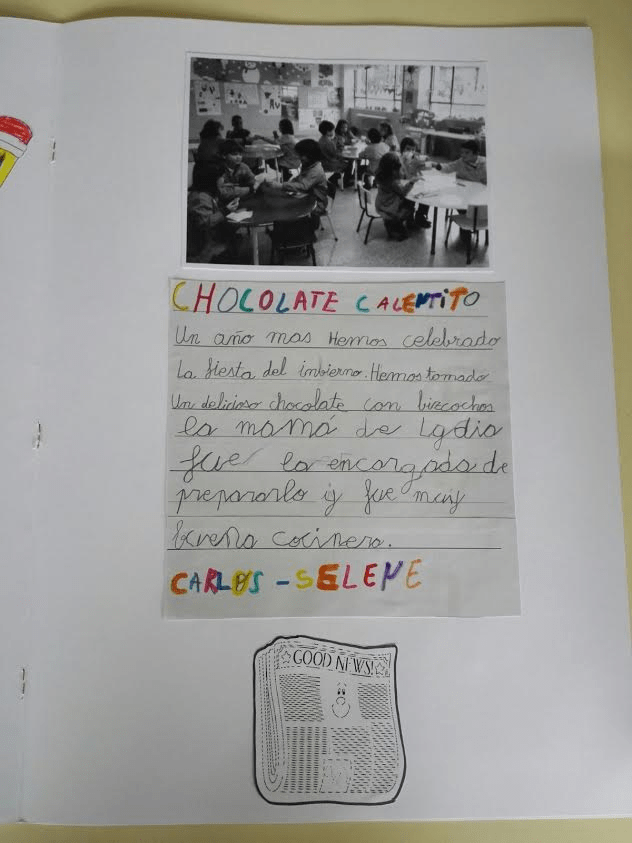 CHOCOLATE CALENTITO
Un año mas Hemos celebrado
La fiesta del imbierno. Hemos tomado
Un delicioso chocolate con bizcochos
la mamá de Lydia
fue la encargada de
prepararlo iy fue muy
buena cocinera.
CARLOS - SELENE
GOOD NEWS!